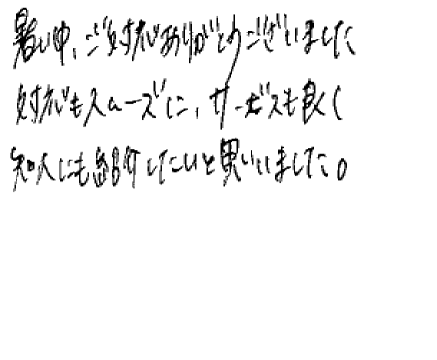 暑い中、ご対応ありがとうございました
対応もスムーズに、サービスも良く
知人にも紹介したいと思いました。